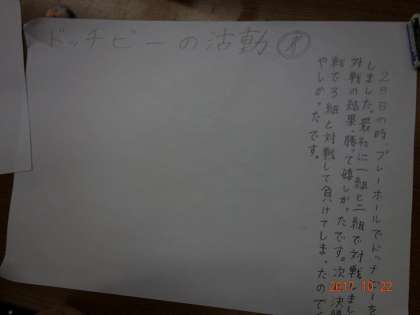 ドッチビーの活動 才
28日の時、プレーホールでドッチビーを
しました。最初に一組と二組で対戦しまし
対戦の結果、勝って嬉しかったです。次に決勝
戦で3組と対戦して負けてしまったので
やしかったです。
2017 10 22